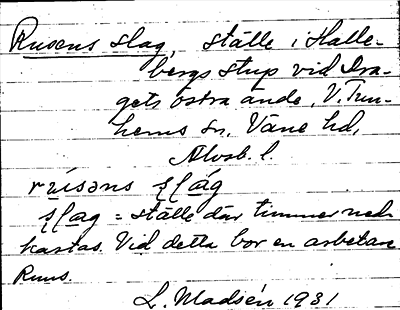 Rusens slag, ställe i Halle-
bergs stup vid Dra-
gets östra ände, V. Tun-
hems sn, Väne hd,
Älvsb. l.
rusəns slág
slag = ställe där timmer ned-
kastas. Vid detta bor en arbetare
Ruus.
L. Madsén 1931